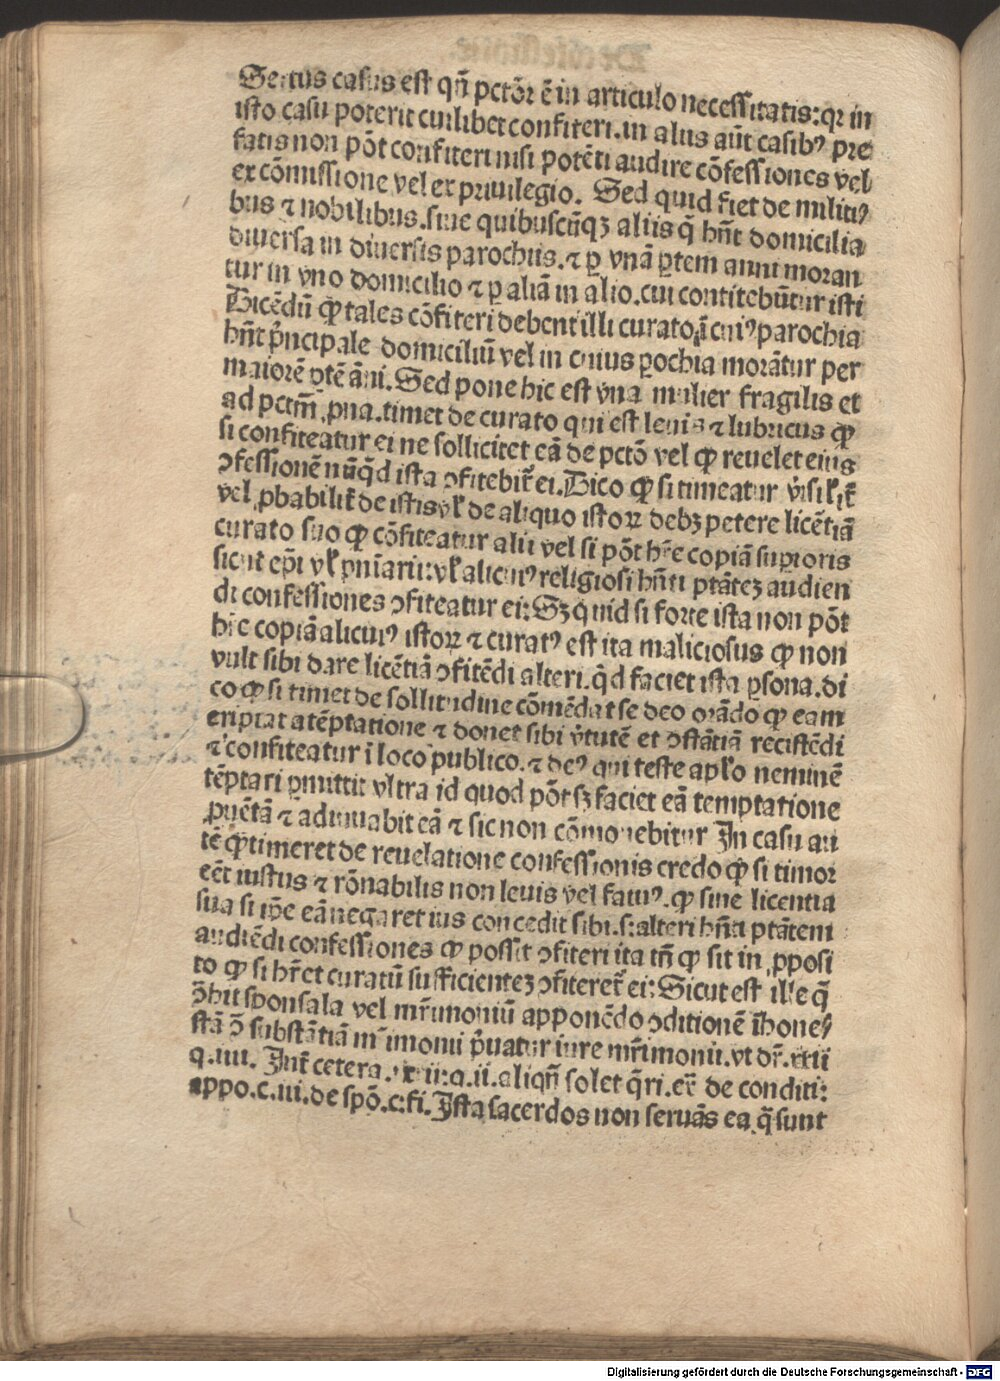 Sextus casus est qñ pctõr ẽ in articulo necessitatis: qꝛ in
isto casu poterit cuilibet confiteri. in aliis aũt casibꝰ pre
fatis non põt confiteri nisi potẽti audire cõfessiones vel
ex cõmissione vel ex priuilegio. Sed quid fiet de militiꝰ
bus ⁊ nobilibus. siue quibuscũqꝫ aliis q̃ hñt domicilia
diuersa in diuersis parochiis. ⁊ ꝑ vnã ꝑtem anni moran
tur in vno domicilio ⁊ ꝑ aliã in alio. cui confitebũtur isti
Dicẽdũ ꝙ tales cõfiteri debent illi curato ĩ cuiꝰ parochia
hñt p̃ncipale domiciliũ vel in cuius ꝑochia morãtur per
maiorẽ ꝑtẽ ãni. Sed pone hic est vna mulier fragilis et
ad pctm̃ ꝓna. timet de curato qui est leuis ⁊ lubricus ꝙ
si confiteatur ei ne sollicitet eã de pctõ vel ꝙ reuelet eius
ꝯfessionẽ nũq̃d ista ꝯfitebit̃ ei. Dico ꝙ si timeatur v̓isil̓it̓
vel ꝓbabilit̓ de istis vl̓ de aliquo istoꝝ debꝫ petere licẽtiã
curato suo ꝙ cõfiteatur alii vel si põt hr̃e copiã suꝑioris
sicut ep̃i vl̓ pñiarii: vl̓ alicuiꝰ religiosi hñti ptãteꝫ audien
di confessiones ꝯfiteatur ei: Sꝫ quid si forte ista non põt
hr̃e copiã alicuiꝰ istoꝝ ⁊ curatꝰ est ita maliciosus ꝙ non
vult sibi dare licẽtiã ꝯfitẽdi alteri. q̃d faciet ista ꝑsona. di
co ꝙ si timet de sollitudine cõmẽdat se deo orãdo ꝙ eam
eripiat a tẽptatione ⁊ donet sibi v̓tutẽ et ꝯstãtiã recistẽdi
⁊ confiteatur ĩ loco publico. ⁊ deꝰ qui teste apl̓o neminẽ
tẽptari ꝑmittit vltra id quod põt sꝫ faciet eã temptatione
ꝓuẽtã ⁊ adiuuabit eã ⁊ sic non cõmouebitur In casu au
tẽ ꝙ timeret de reuelatione confessionis credo ꝙ si timor
eẽt iustus ⁊ rõnabilis non leuis vel fatuꝰ. ꝙ sine licentia
sua si ip̃e eã negaret ius concedit sibi. s: alteri hñti ptãtem
audiẽdi confessiones ꝙ possit ꝯfiteri ita tñ ꝙ sit in ꝓposi
to ꝙ si hr̃et curatũ sufficienteꝫ ꝯfiteret̃ ei: Sicut est ille q̃
ꝯ̃hit sponsala vel mr̃imoniũ apponẽdo ꝯditionẽ ĩhoneꝰ
stã ꝯ̃ substãtiã mr̃imonii p̃uatur iure mr̃imonii. vt dr̃. xxii
q. iiii. Int̃ cetera. ii: q. ii. aliqñ solet q̃ri. ex̃ de conditi:
appo. c. iii. de spõ. c: fi. Ista sacerdos non seruãs ea q̃ sunt
Digitalisierung gefördert durch die Deutsche Forschungsgemeinschaft - DFG